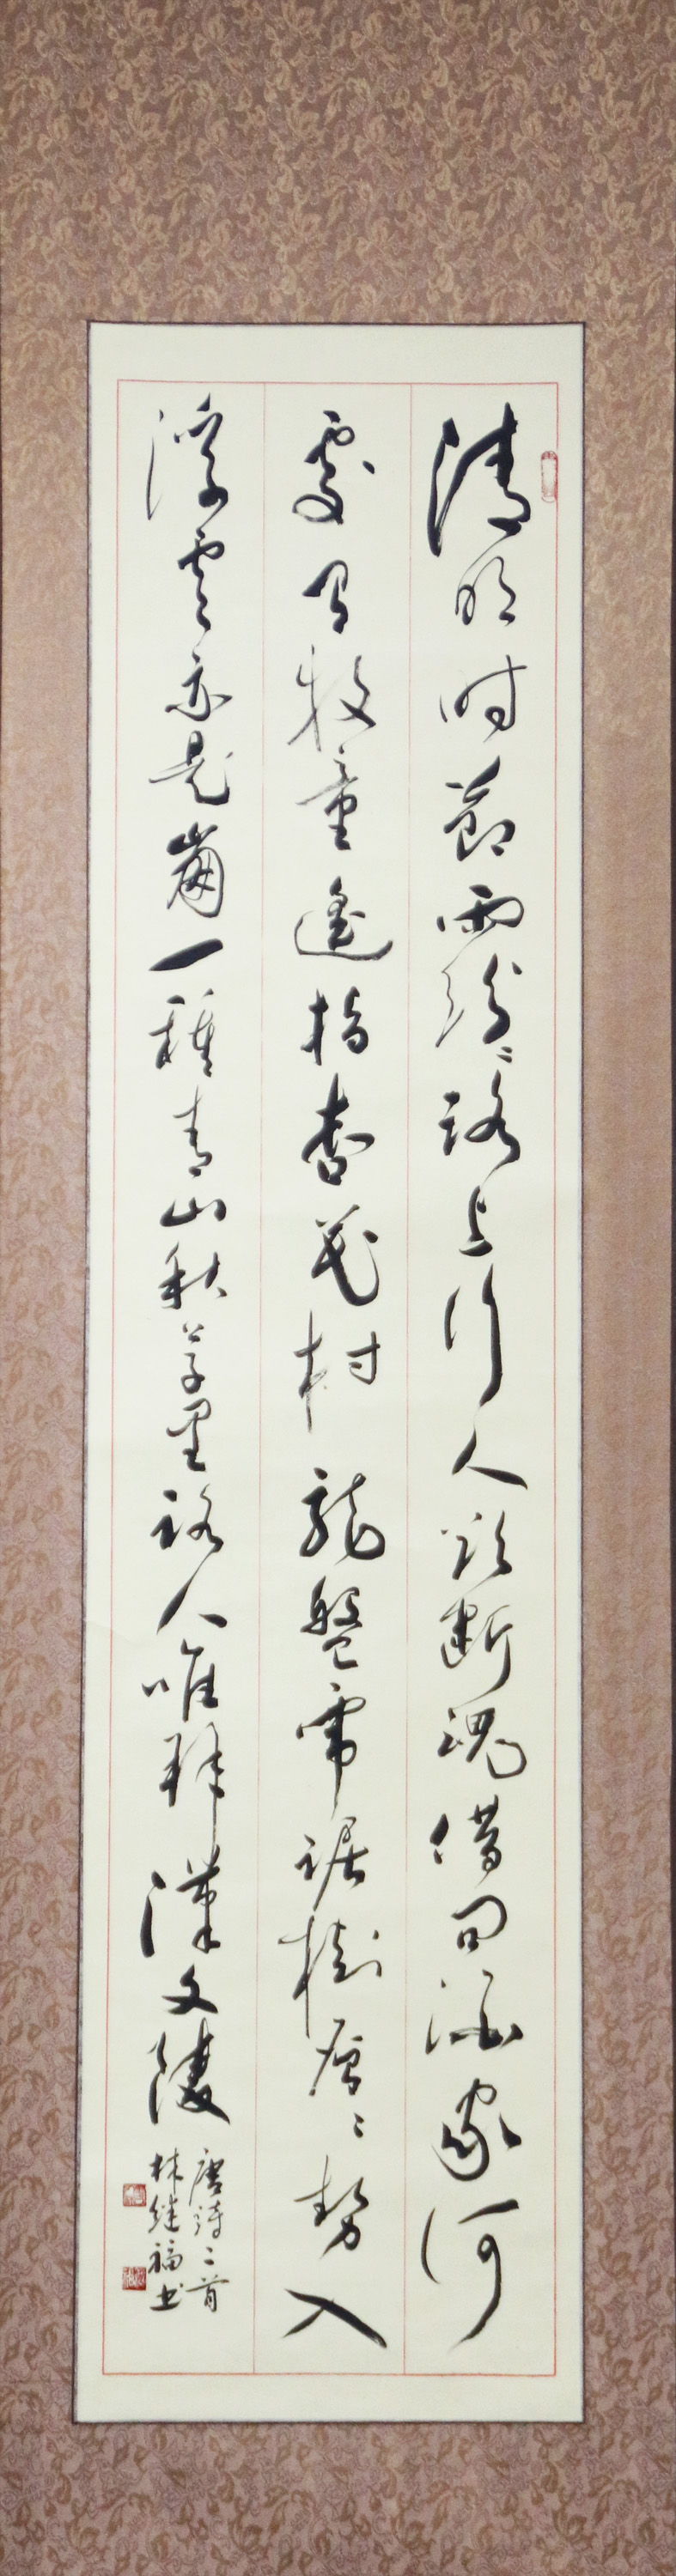 清明时節雨纷〻路上行人欲断魂借问酒家何
處有牧童遥指杏花村龍盤虎踞樹層〻勢入
浮雲亦是崩一種青山秋草里路人唯拜漢文陵
唐诗二首
林继福书